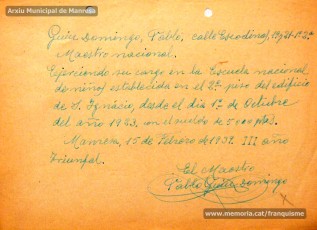 Arxiu Municipal de Manresa
Domingo, Pablo, calle
Maestro nacional.
Ejerciendo su cargo en la Escuela nacional
de niños establecida en el 2º piso del edificio
de S. Ignacio, desde el dia 1º de Octubre
del año 1933, con el sueldo de 5000 ptas.
Manresa, 15 de Febrero de 1939. III año
Triunfal.
El Maestro
Pablo Domingo
www.memoria.cat/franquisme